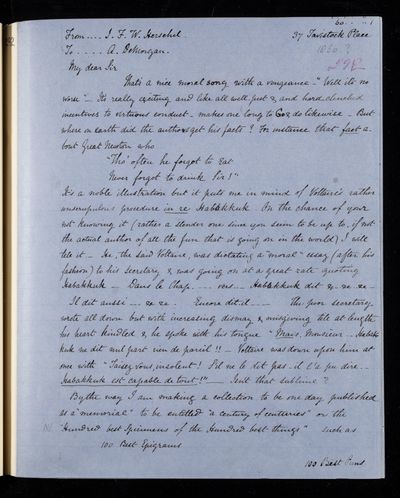 From.... J. F. W. Herschel. 37 Tavistock Place
To ..... A. DeMorgan. 1860.?
My dear Sir
That's a nice moral song with a vengeance – "Well it's no
worse" – It's really exciting and like all well put &, and hard clenched
incentives to virtuous conduct – makes one long to Go & do likewise – But
where on earth did the authors get his facts? For instance that fact a-
bout Great Newton who
"Tho' often he forgot to Eat
Never forgot to drink Sir!"
It's a noble illustration but it puts me in mind of Voltaire's rather
unscrupulous procedure in re Habakkuk. On the chance of your
not knowing it (rather a slender one since you seem to be up to, if not
the actual author of all the fun that is going on in the world) I will
tell it – He, the said Voltaire, was dictating a "moral" essay (after his
fashion) to his secretary & was going on at a great rate quoting
Habakkuk – Dans le Chap. .... vers... Habakkuk dit &c &c &c –
Il dit aussi – &c &c – Encore dit il – The poor secretary
wrote all down but with increasing dismay & misgiving till at length
his heart kindled & he spoke with his tongue "Mais, Monsieur – Habak-
kuk ne dit nul part rien de pareil!! – Voltaire was down upon him at
one with "Taisez vous, insolent! S'il ne le dit pas. il l'a pu dire...
Habakkuk est capable de tout!" – Isn't that sublime?
By the way I am making a collection to be one day published
as a "memorial" to be entitled "a century of centuries" or the
"Hundred best specimens of the Hundred best things" such as
100 Best Epigrams
100 Best Puns